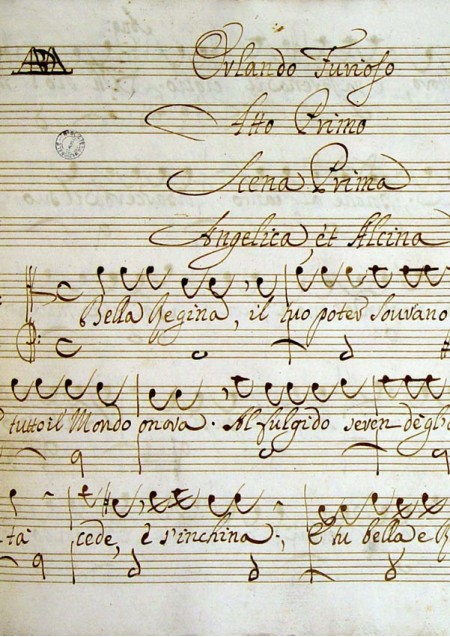 Orlando Furioso
Atto Primo
Scena Prima
Angelica, èt Alcina
Bella Regina, il tuo poter Sourano
tutto il Mondo onora. Al fulgido seren degl
tà cede, è s'inchina; È tu bella e R